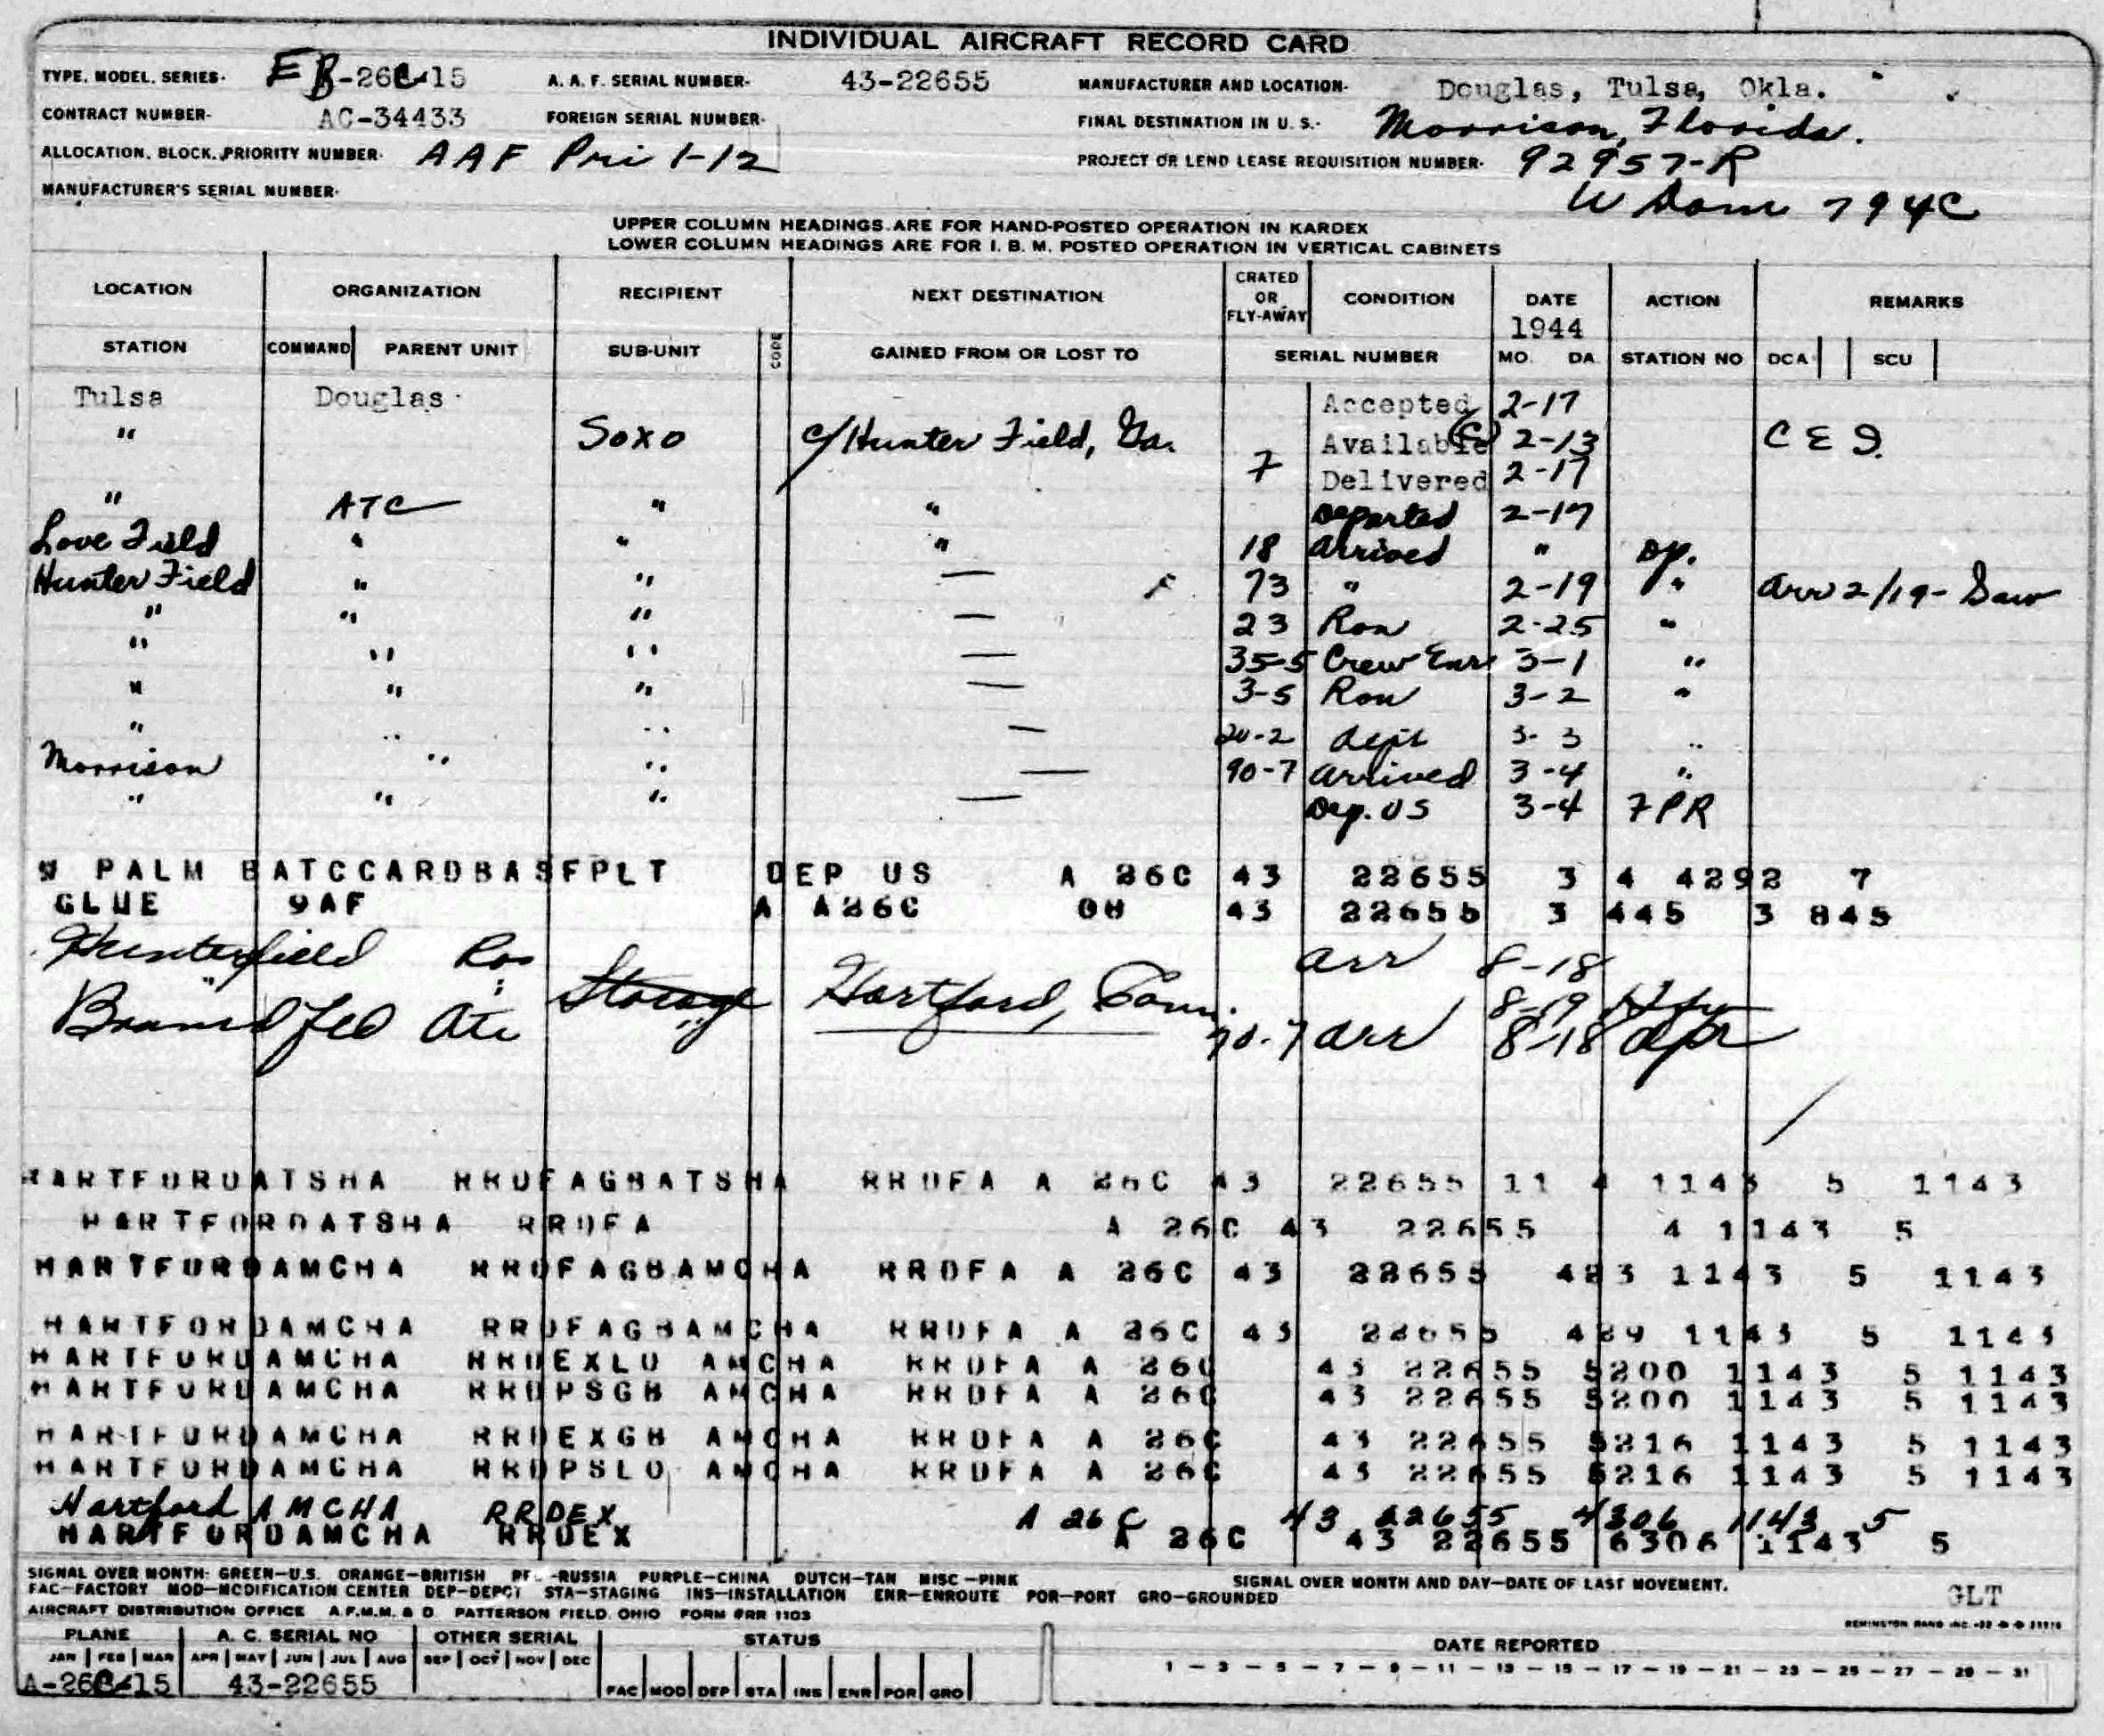 INDIVIDUAL AIRCRAFT RECORD CARD
TYPE, MODEL, SERIES- EB-26C-15 A. A. F. SERIAL NUMBER- 43-22655 MANUFACTURER AND LOCATION- Douglas, Tulsa, Okla.
CONTRACT NUMBER- AC-34433 FOREIGN SERIAL NUMBER- FINAL DESTINATION IN U. S.- Morrison, Florida.
ALLOCATION, BLOCK, PRIORITY NUMBER- AAF Pri 1-12 PROJECT OR LEND LEASE REQUISITION NUMBER- 92957-R
MANUFACTURER'S SERIAL NUMBER- 794C
UPPER COLUMN HEADINGS ARE FOR HAND-POSTED OPERATION IN KARDEX
LOWER COLUMN HEADINGS ARE FOR I. B. M. POSTED OPERATION IN VERTICAL CABINETS
LOCATION ORGANIZATION RECIPIENT NEXT DESTINATION CRATED OR FLY-AWAY CONDITION DATE ACTION REMARKS
1944
STATION COMMAND PARENT UNIT SUB-UNIT GAINED FROM OR LOST TO SERIAL NUMBER MO. DA. STATION NO DCA SCU
Tulsa Douglas Accepted 2-17
" SOXO c/Hunter Field, Ga. Available 2-13 C E I.
7 Delivered 2-17
" ATC " " Departed 2-17
Love Field " " " 18 arrived " Dp.
Hunter Field " " — 73 " 2-19 " arr 2/19-
" " " — 23 Ron 2-25 "
" " " — 35-5 Crew Enr 3-1 "
" " " — 3-5 Ron 3-2 "
" " " — 20-2 dept 3-3 "
Morrison " " — 90-7 arrived 3-4 "
" " " — Dep. US 3-4 7PR
W PALM BATCCARDBASFPLT DEP US A 26C 43 22655 3 4 4292 7
GLUE 9AF A A26C 43 22655 3 445 3 845
Hunterfield arr 8-18
Storage Hartford, Conn. 8-19
90-7 arr 8-18
HARTFORDATSHA RRDFAGBATSHA RRDFA A 26C 43 22655 11 4 1143 5 1143
HARTFORDATSHA RRDFA A 26C 43 22655 4 1143 5
HARTFORDAMCHA RRDFAGBAMCHA RRDFA A 26C 43 22655 423 1143 5 1143
HARTFORDAMCHA RRDFAGBAMCHA RRDFA A 26C 43 22655 429 1143 5 1143
HARTFORDAMCHA RRDEXLO AMCHA RRDFA A 26C 43 22655 5200 1143 5 1143
HARTFORDAMCHA RRDPSGB AMCHA RRDFA A 26C 43 22655 5200 1143 5 1143
HARTFORDAMCHA RRDEXGB AMCHA RRDFA A 26C 43 22655 5216 1143 5 1143
HARTFORDAMCHA RRDPSLO AMCHA RRDFA A 26C 43 22655 5216 1143 5 1143
Hartford AMCHA RRDEX A 26C 43 22655 4306 1143 5
HARTFORDAMCHA RRDEX A 26C 43 22655 6306 1143 5
SIGNAL OVER MONTH: GREEN—U.S. ORANGE—BRITISH —RUSSIA PURPLE—CHINA DUTCH—TAN MISC—PINK
SIGNAL OVER MONTH AND DAY—DATE OF LAST MOVEMENT.
FAC—FACTORY MOD—MODIFICATION CENTER DEP—DEPOT STA—STAGING INS—INSTALLATION ENR—ENROUTE POR—PORT GRO—GROUNDED
GLT
AIRCRAFT DISTRIBUTION OFFICE A.F.M.M. & D. PATTERSON FIELD, OHIO FORM #RR 1103
REMINGTON RAND INC.
PLANE A. C. SERIAL NO OTHER SERIAL STATUS DATE REPORTED
JAN FEB MAR APR MAY JUN JUL AUG SEP OCT NOV DEC 1 — 3 — 5 — 7 — 9 — 11 — 13 — 15 — 17 — 19 — 21 — 23 — 25 — 27 — 29 — 31
A-26C-15 43-22655 FAC MOD DEP STA INS ENR POR GRO